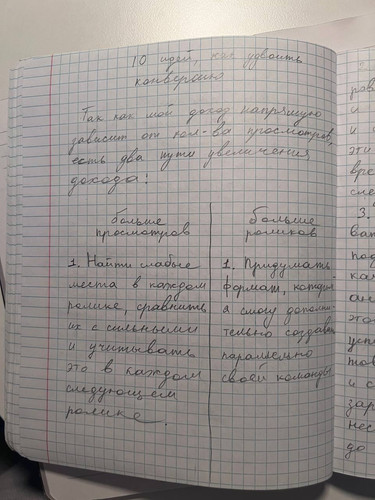 10 идей, как удвоить
конверсию
Так как мой доход напрямую
зависит от кол-ва просмотров,
есть два пути увеличения
дохода:
больше
просмотров
1. Найти слабые
места в каждом
ролике, сравнить
их с сильными
и учитывать
это в каждом
следующем
ролике.
больше
роликов
1. Придумать
формат, который
я смогу дополни-
тельно создавать
параллельно
своей команды
3.